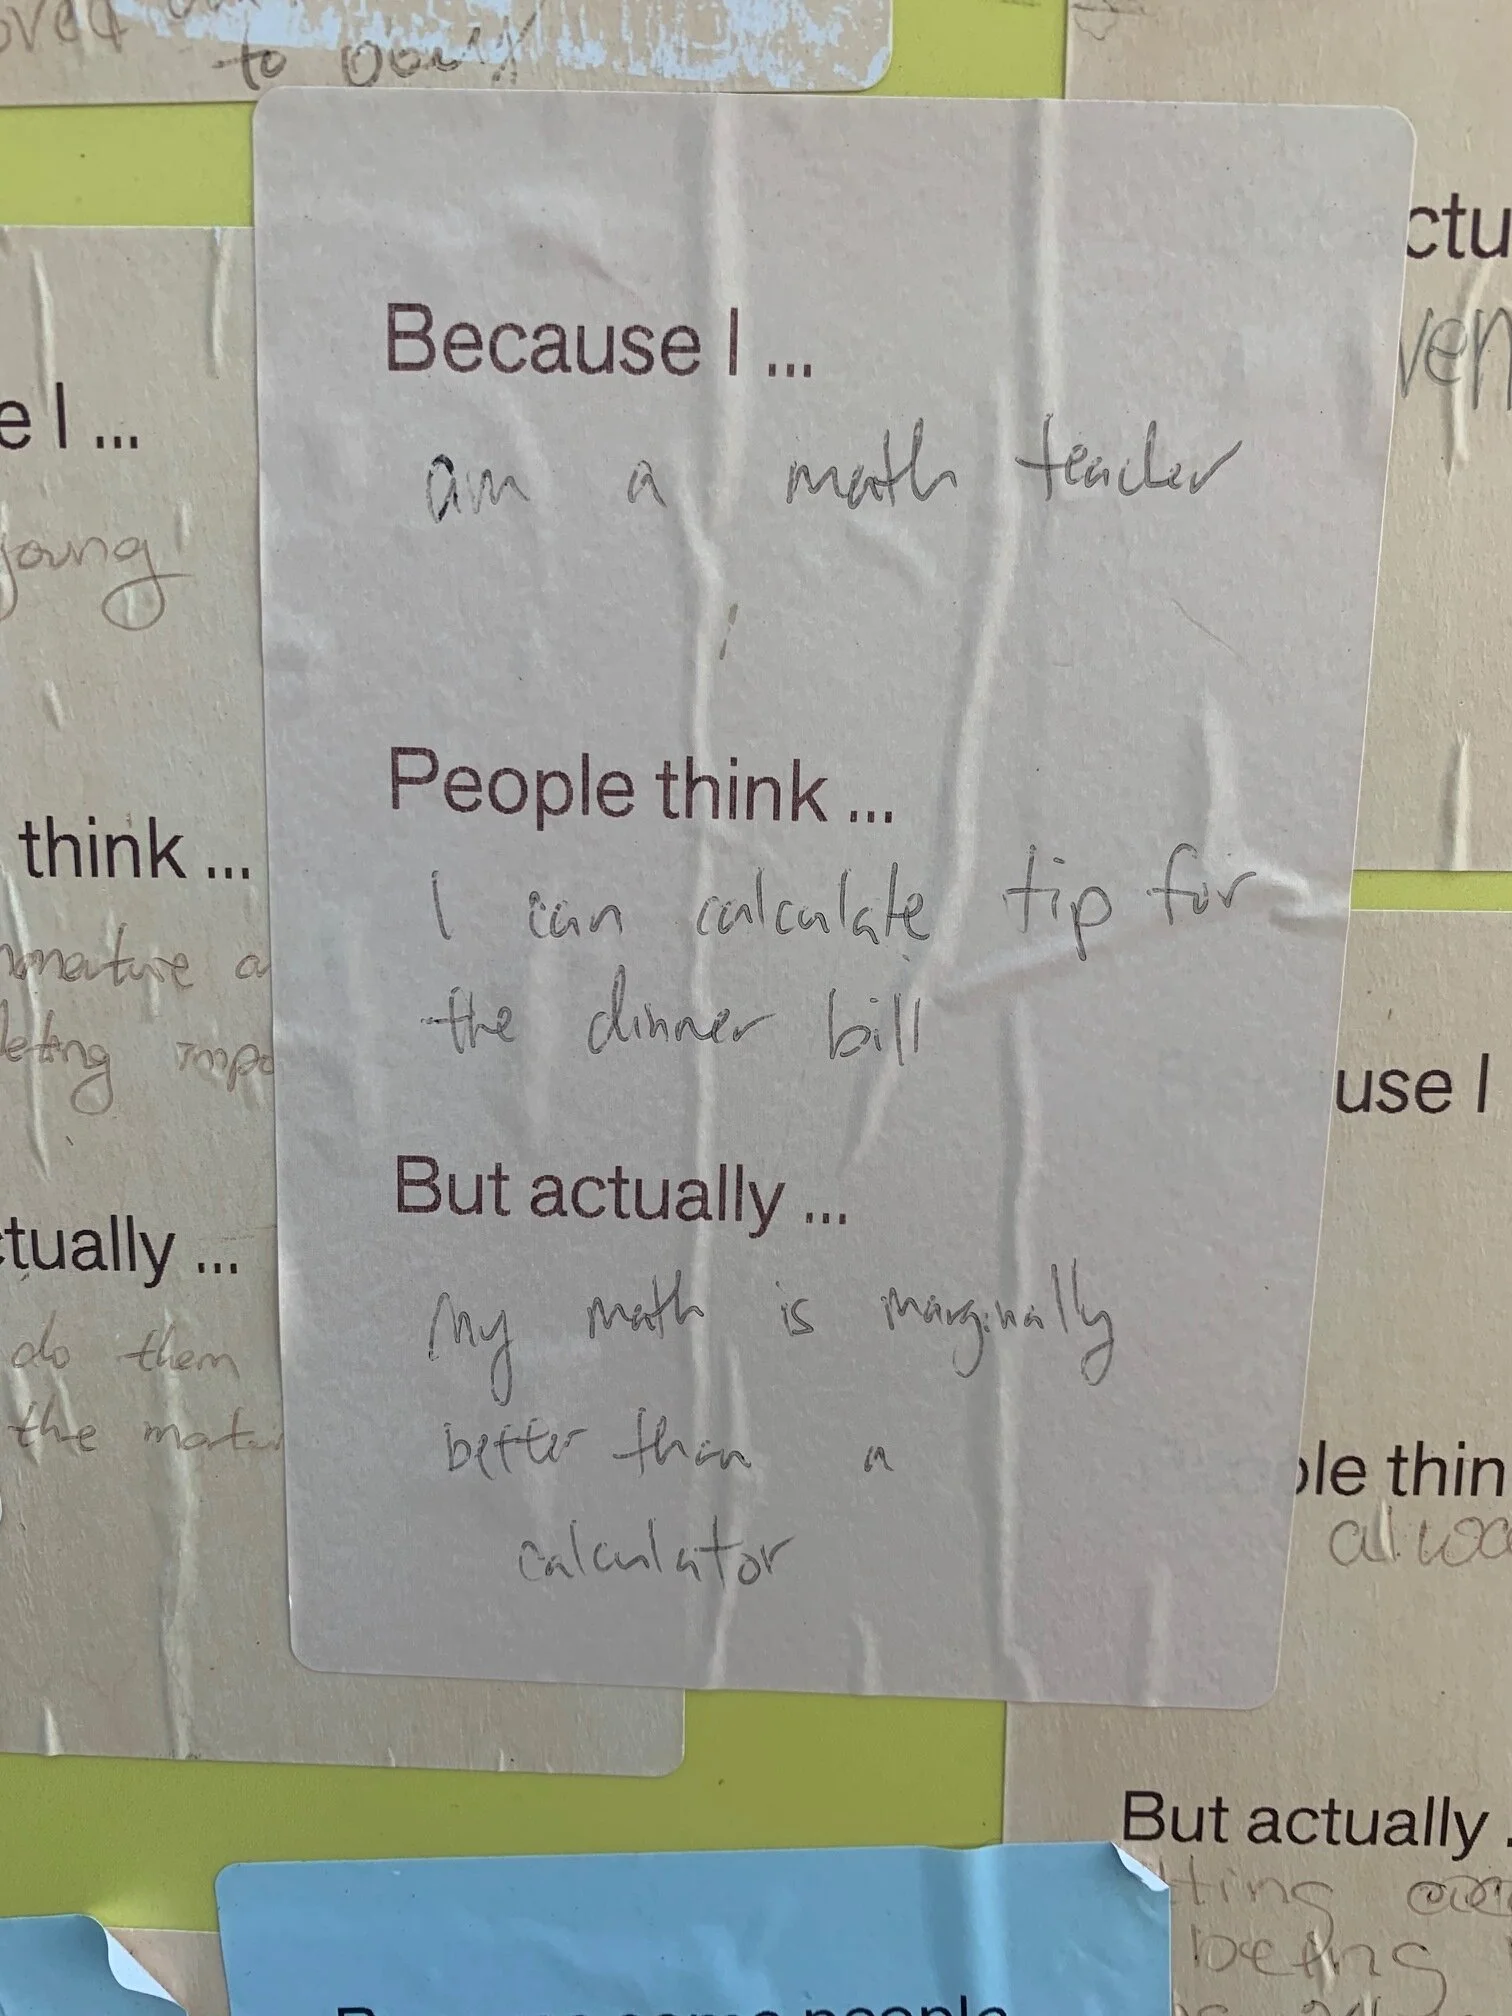 to
Because I ...
am a math teacher
People think ...
I can calculate tip for
the dinner bill
But actually ...
My math is marginally
better than a
calculator
e I ...
young
think ...
actually ...
do them
the
ctu
use I
ple thin
But actually .
being